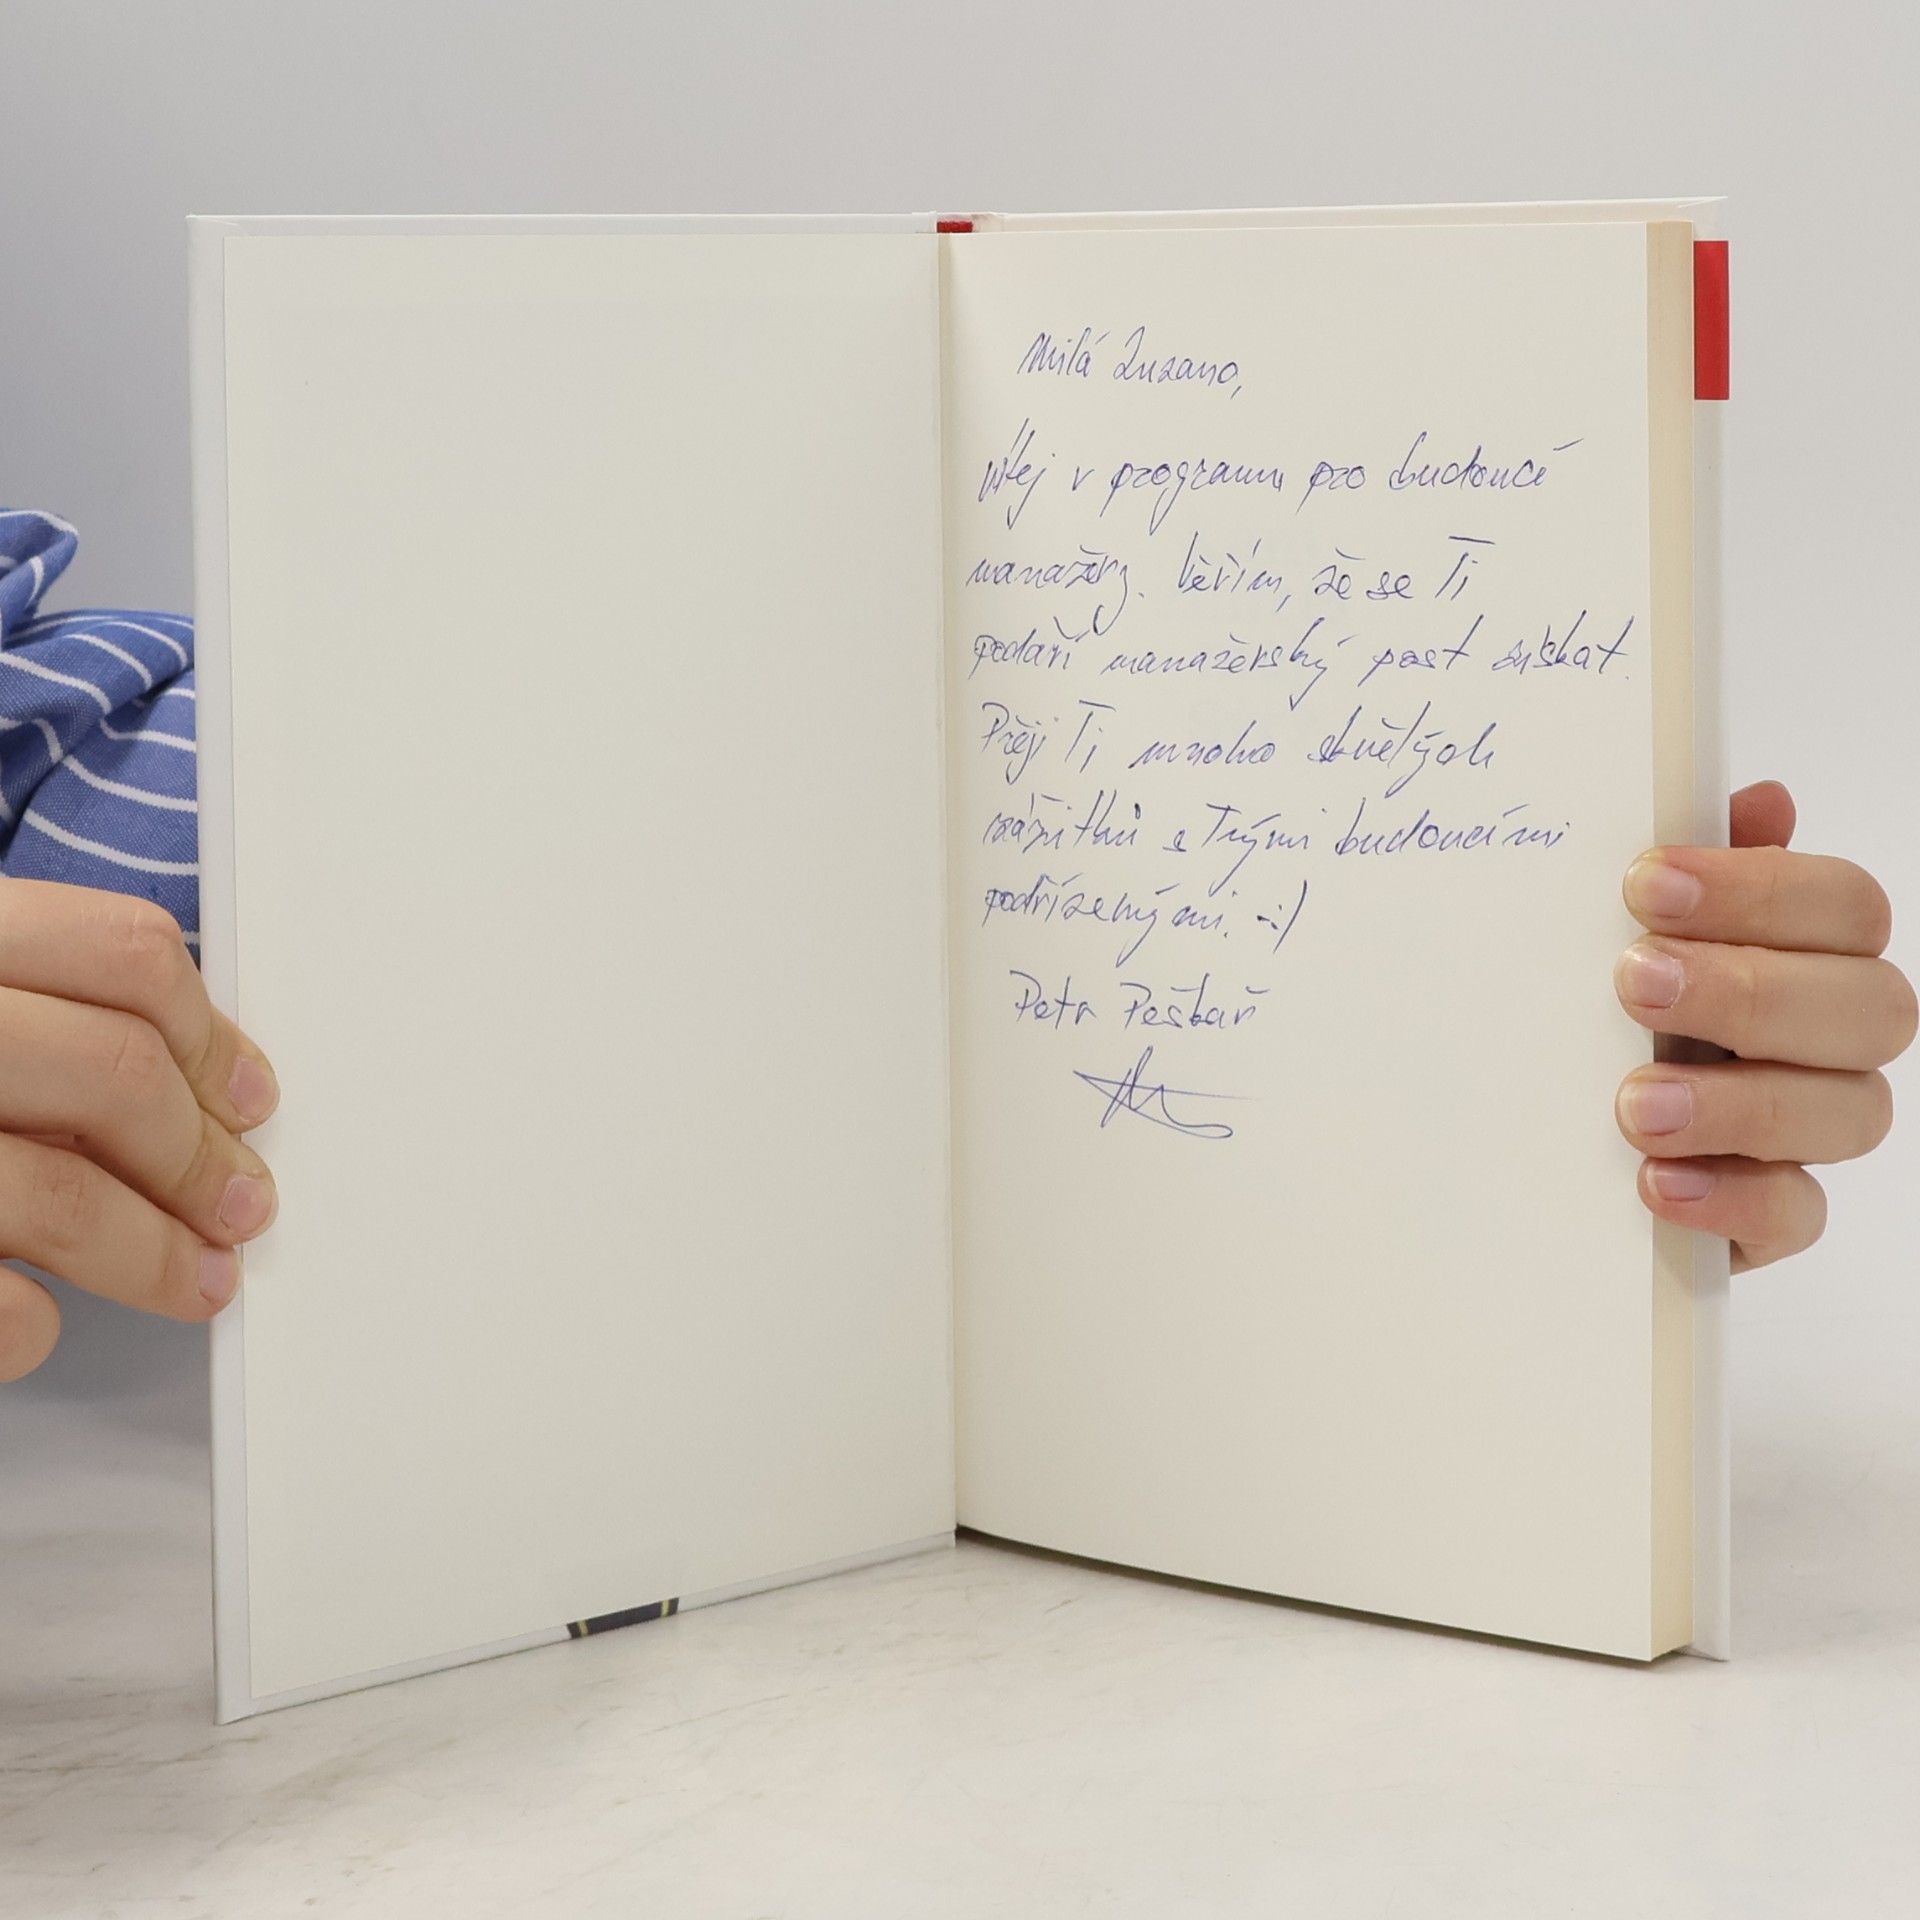 Milá Zuzano,
Vítej v programu pro budoucí
manažery. Věřím, že se Ti
podaří manažerský post získat.
Přeji Ti mnoho skvělých
zážitků s Tvými budoucími
podřízenými. :-)
Petr Peškař